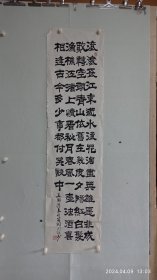 滾滾長江東逝水浪花淘盡英雄是非成
敗轉頭空青山依舊在幾度夕陽紅白髮
漁樵江渚上慣看秋月春風一壺濁酒喜
相逢古今多少事都付笑談中
2024.04.09 13:03